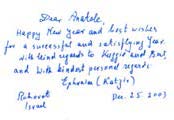 Dear Anatole,
Happy New Year and best wishes
for a successful and satisfying Year.
With kind regards to and
and with kindest personal regards
Ephraim (Katzir)
Rehovot
Israel
Dec. 25 2003